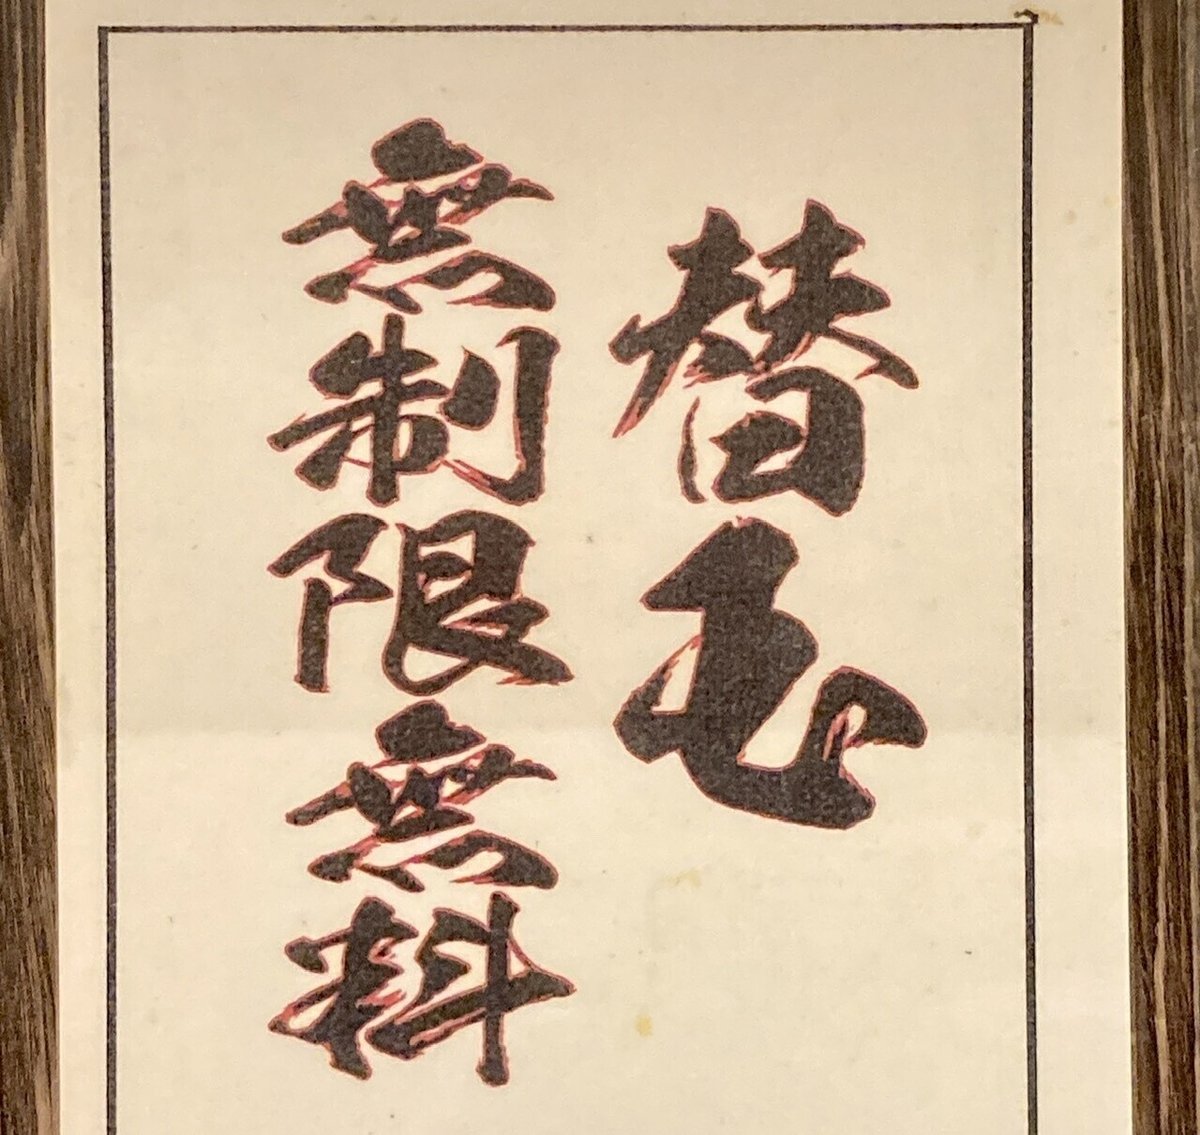 替玉
無制限無料